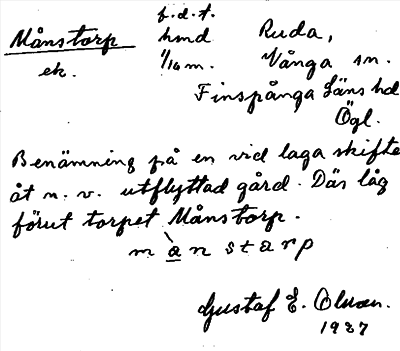 f.d.t.
Månstorp hmd Ruda,
ek. 1/16 m. Vånga sn.
Finspånga Läns hd
Ögl.
Benämning på en vid laga skifte
åt n. v. utflyttad gård. Där låg
förut torpet Månstorp.
m à n s t a r p
Gustaf E. Olsson.
1937